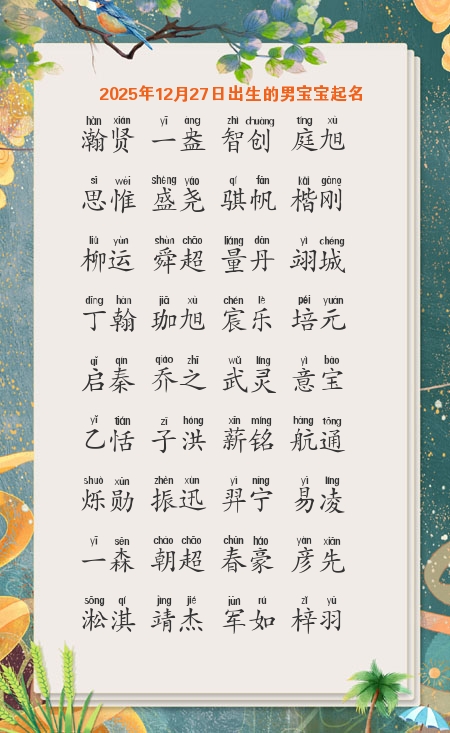 2025年12月27日出生的男宝宝起名
hàn xián yī àng zhì chuàng tíng xù
瀚贤 一盎 智创 庭旭
sī wéi shèng yáo qí fān kǎi gāng
思惟 盛尧 骐帆 楷刚
liǔ yùn shùn chāo liáng dān yì chéng
柳运 舜超 量丹 翊城
dīng hàn jiā xù chén lè péi yuán
丁翰 珈旭 宸乐 培元
qǐ qín qiáo zhī wǔ líng yì bǎo
启秦 乔之 武灵 意宝
yǐ tián zǐ hóng xīn míng háng tōng
乙恬 子洪 薪铭 航通
shuò xūn zhèn xùn yì níng yì líng
烁勋 振迅 羿宁 易凌
yī sēn cháo chāo chūn háo yàn xiān
一森 朝超 春豪 彦先
sōng qí jìng jié jūn rú zǐ yǔ
淞淇 靖杰 军如 梓羽